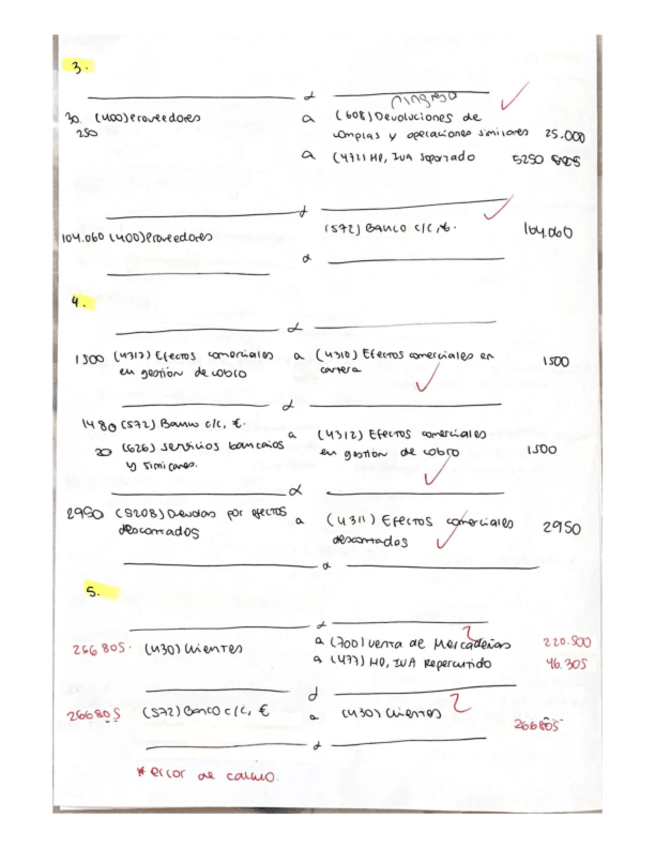 3.
ingreso
30. (400) Proveedores a (608) Devoluciones de
250 compras y operaciones similares 25.000
a (472) HP, IVA Soportado 5250
104.060 (400) Proveedores (572) Banco c/c, €. 104.060
4.
1500 (4312) Efectos comerciales a (4310) Efectos comerciales en 1500
en gestión de cobro cartera
1480 (572) Banco c/c, €. a (4312) Efectos comerciales
20 (626) Servicios bancarios en gestión de cobro 1500
y similares.
2950 (5208) Deudas por efectos a (4311) Efectos comerciales 2950
descontados descontados
5.
266805. (430) Clientes a (700) Venta de Mercaderías 220.500
a (477) HP, IVA Repercutido 46.305
266805 (572) Banco c/c, € a (430) Clientes 266805
* error de calculo.